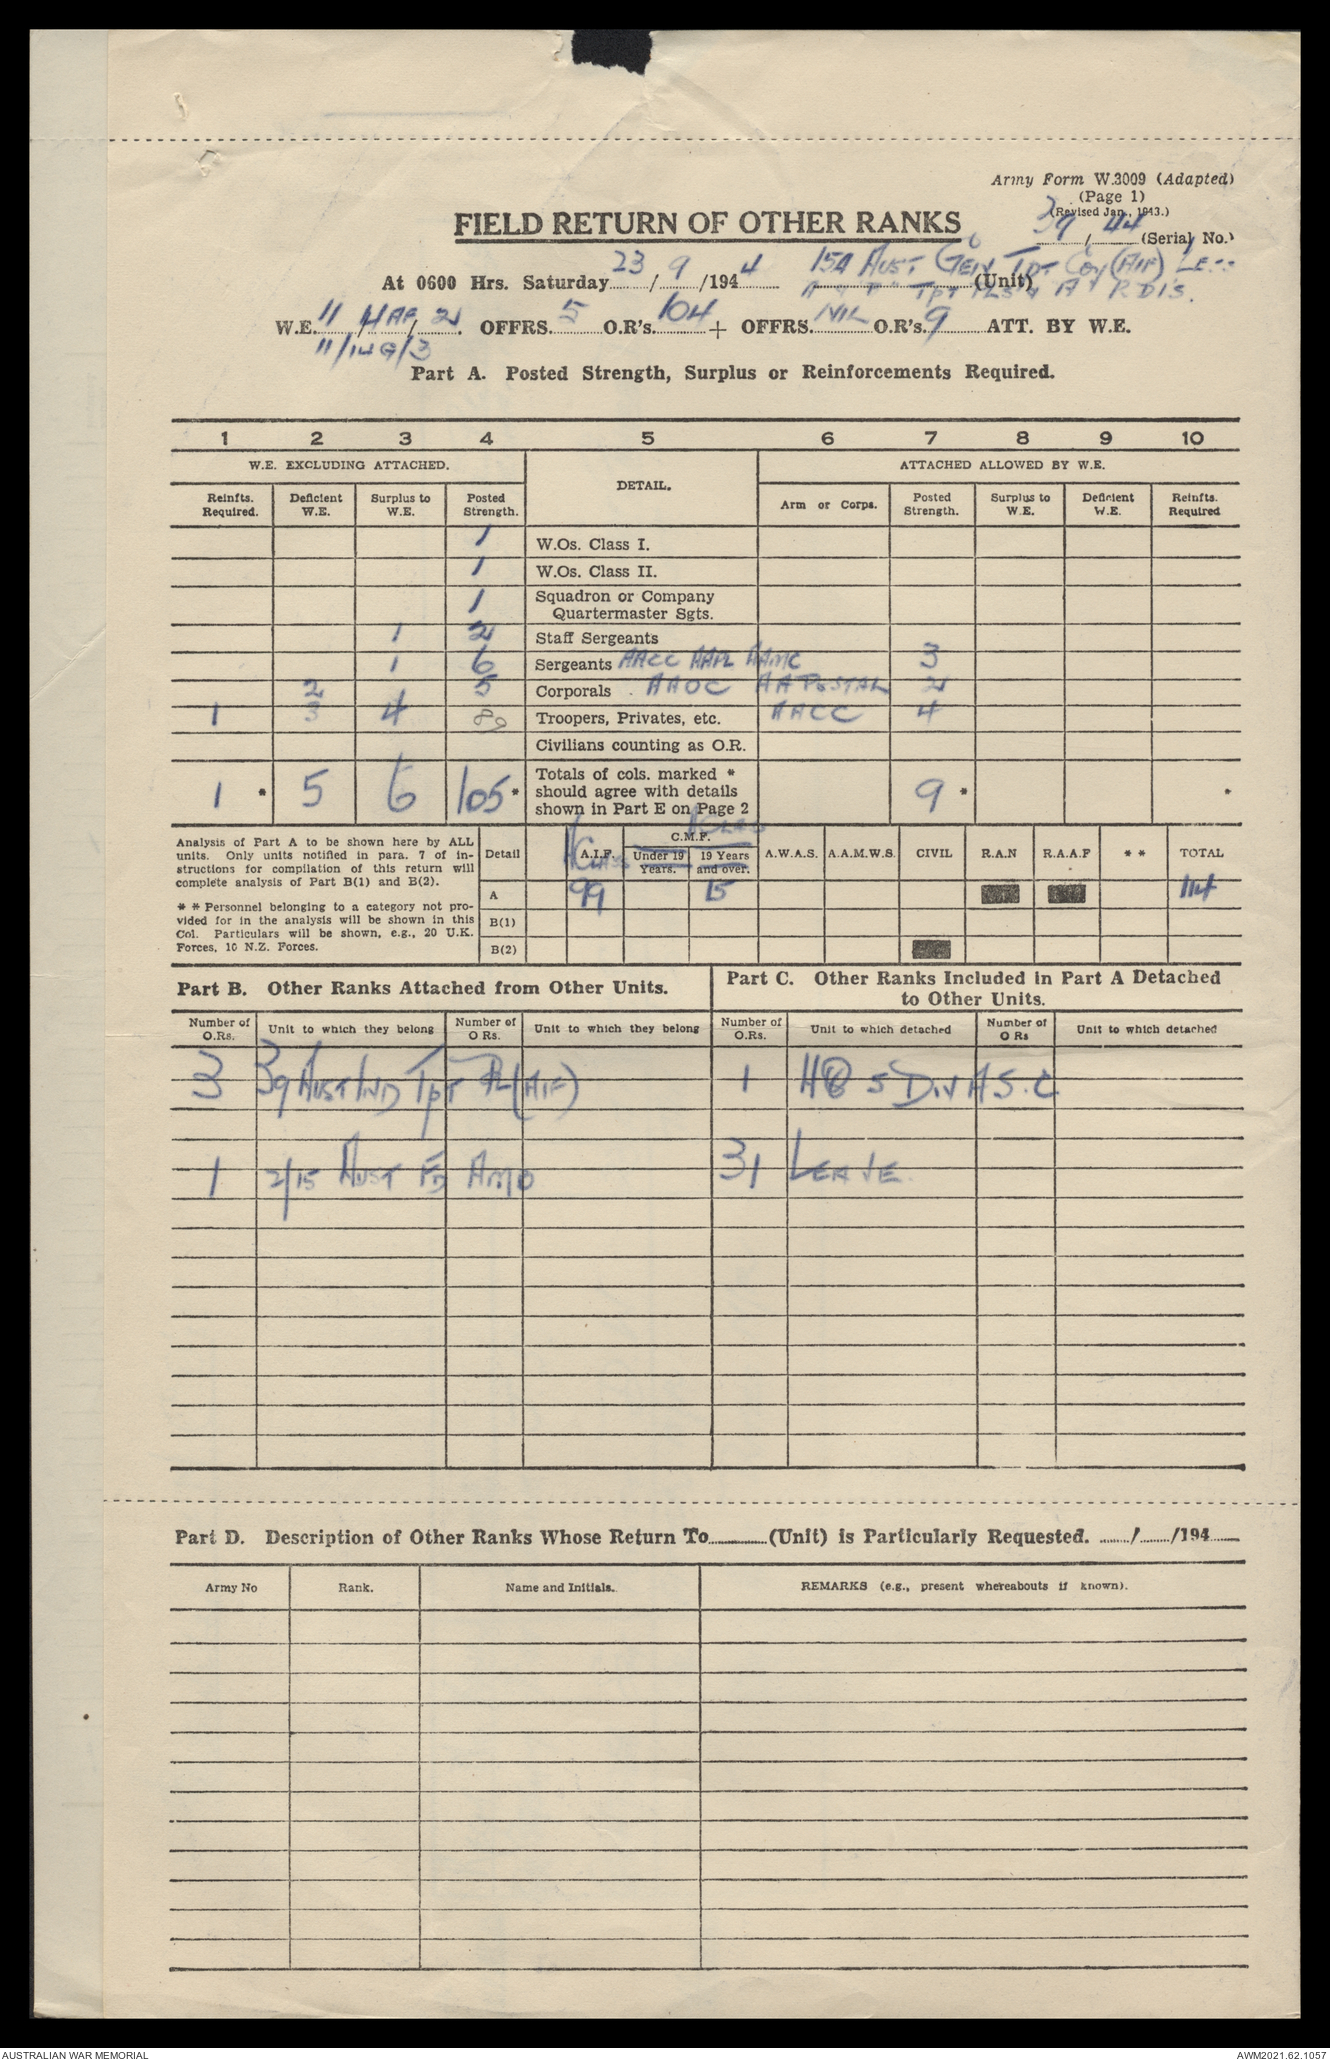 Army Form W.3009 (Adapted)
(Page 1)
(Revised Jan., 1943.)
39 / 44 (Serial No.)
FIELD RETURN OF OTHER RANKS
At 0600 Hrs. Saturday 23 / 9 /194 4 154 AUST GEN TPT COY (AIF) LESS (Unit)
TPT PLS
W.E. 11 / / 2 OFFRS. 5 O.R's. 104 + OFFRS. NIL O.R's. 9 ATT. BY W.E.
Part A. Posted Strength, Surplus or Reinforcements Required.
1 2 3 4 5 6 7 8 9 10
W.E. EXCLUDING ATTACHED. DETAIL. ATTACHED ALLOWED BY W.E.
Reinfts. Required. Deficient W.E. Surplus to W.E. Posted Strength. Arm or Corps. Posted Strength. Surplus to W.E. Deficient W.E. Reinfts. Required
1 W.Os. Class I.
1 W.Os. Class II.
1 Squadron or Company
Quartermaster Sgts.
1 2 Staff Sergeants
1 6 Sergeants AACC AAPL AAMC 3
2 5 Corporals AAOC AAPOSTAL 2
1 3 4 89 Troopers, Privates, etc. AACC 4
Civilians counting as O.R.
1 * 5 6 105 * Totals of cols. marked *
should agree with details
shown in Part E on Page 2 9 * *
Analysis of Part A to be shown here by ALL
units. Only units notified in para. 7 of in-
structions for compilation of this return will
complete analysis of Part B(1) and B(2).
* * Personnel belonging to a category not pro-
vided for in the analysis will be shown in this
Col. Particulars will be shown, e.g., 20 U.K.
Forces, 10 N.Z. Forces.
Detail A CLASS A.I.F. C.M.F. Under 19 Years. 19 Years and over. A.W.A.S. A.A.M.W.S. CIVIL R.A.N R.A.A.F * * TOTAL
A 99 15 114
B(1)
B(2)
Part B. Other Ranks Attached from Other Units.
Part C. Other Ranks Included in Part A Detached
to Other Units.
Number of O.Rs. Unit to which they belong Number of O Rs. Unit to which they belong Number of O.Rs. Unit to which detached Number of O Rs Unit to which detached
3 39 AUST IND TPT PL (AIF) 1 HQ 5 DIV A.S.C
1 2/15 AUST FD AMB 31 LEAVE.
Part D. Description of Other Ranks Whose Return To (Unit) is Particularly Requested. / /194
Army No Rank. Name and Initials. REMARKS (e.g., present whereabouts if known).
AUSTRALIAN WAR MEMORIAL
AWM2021.62.1057